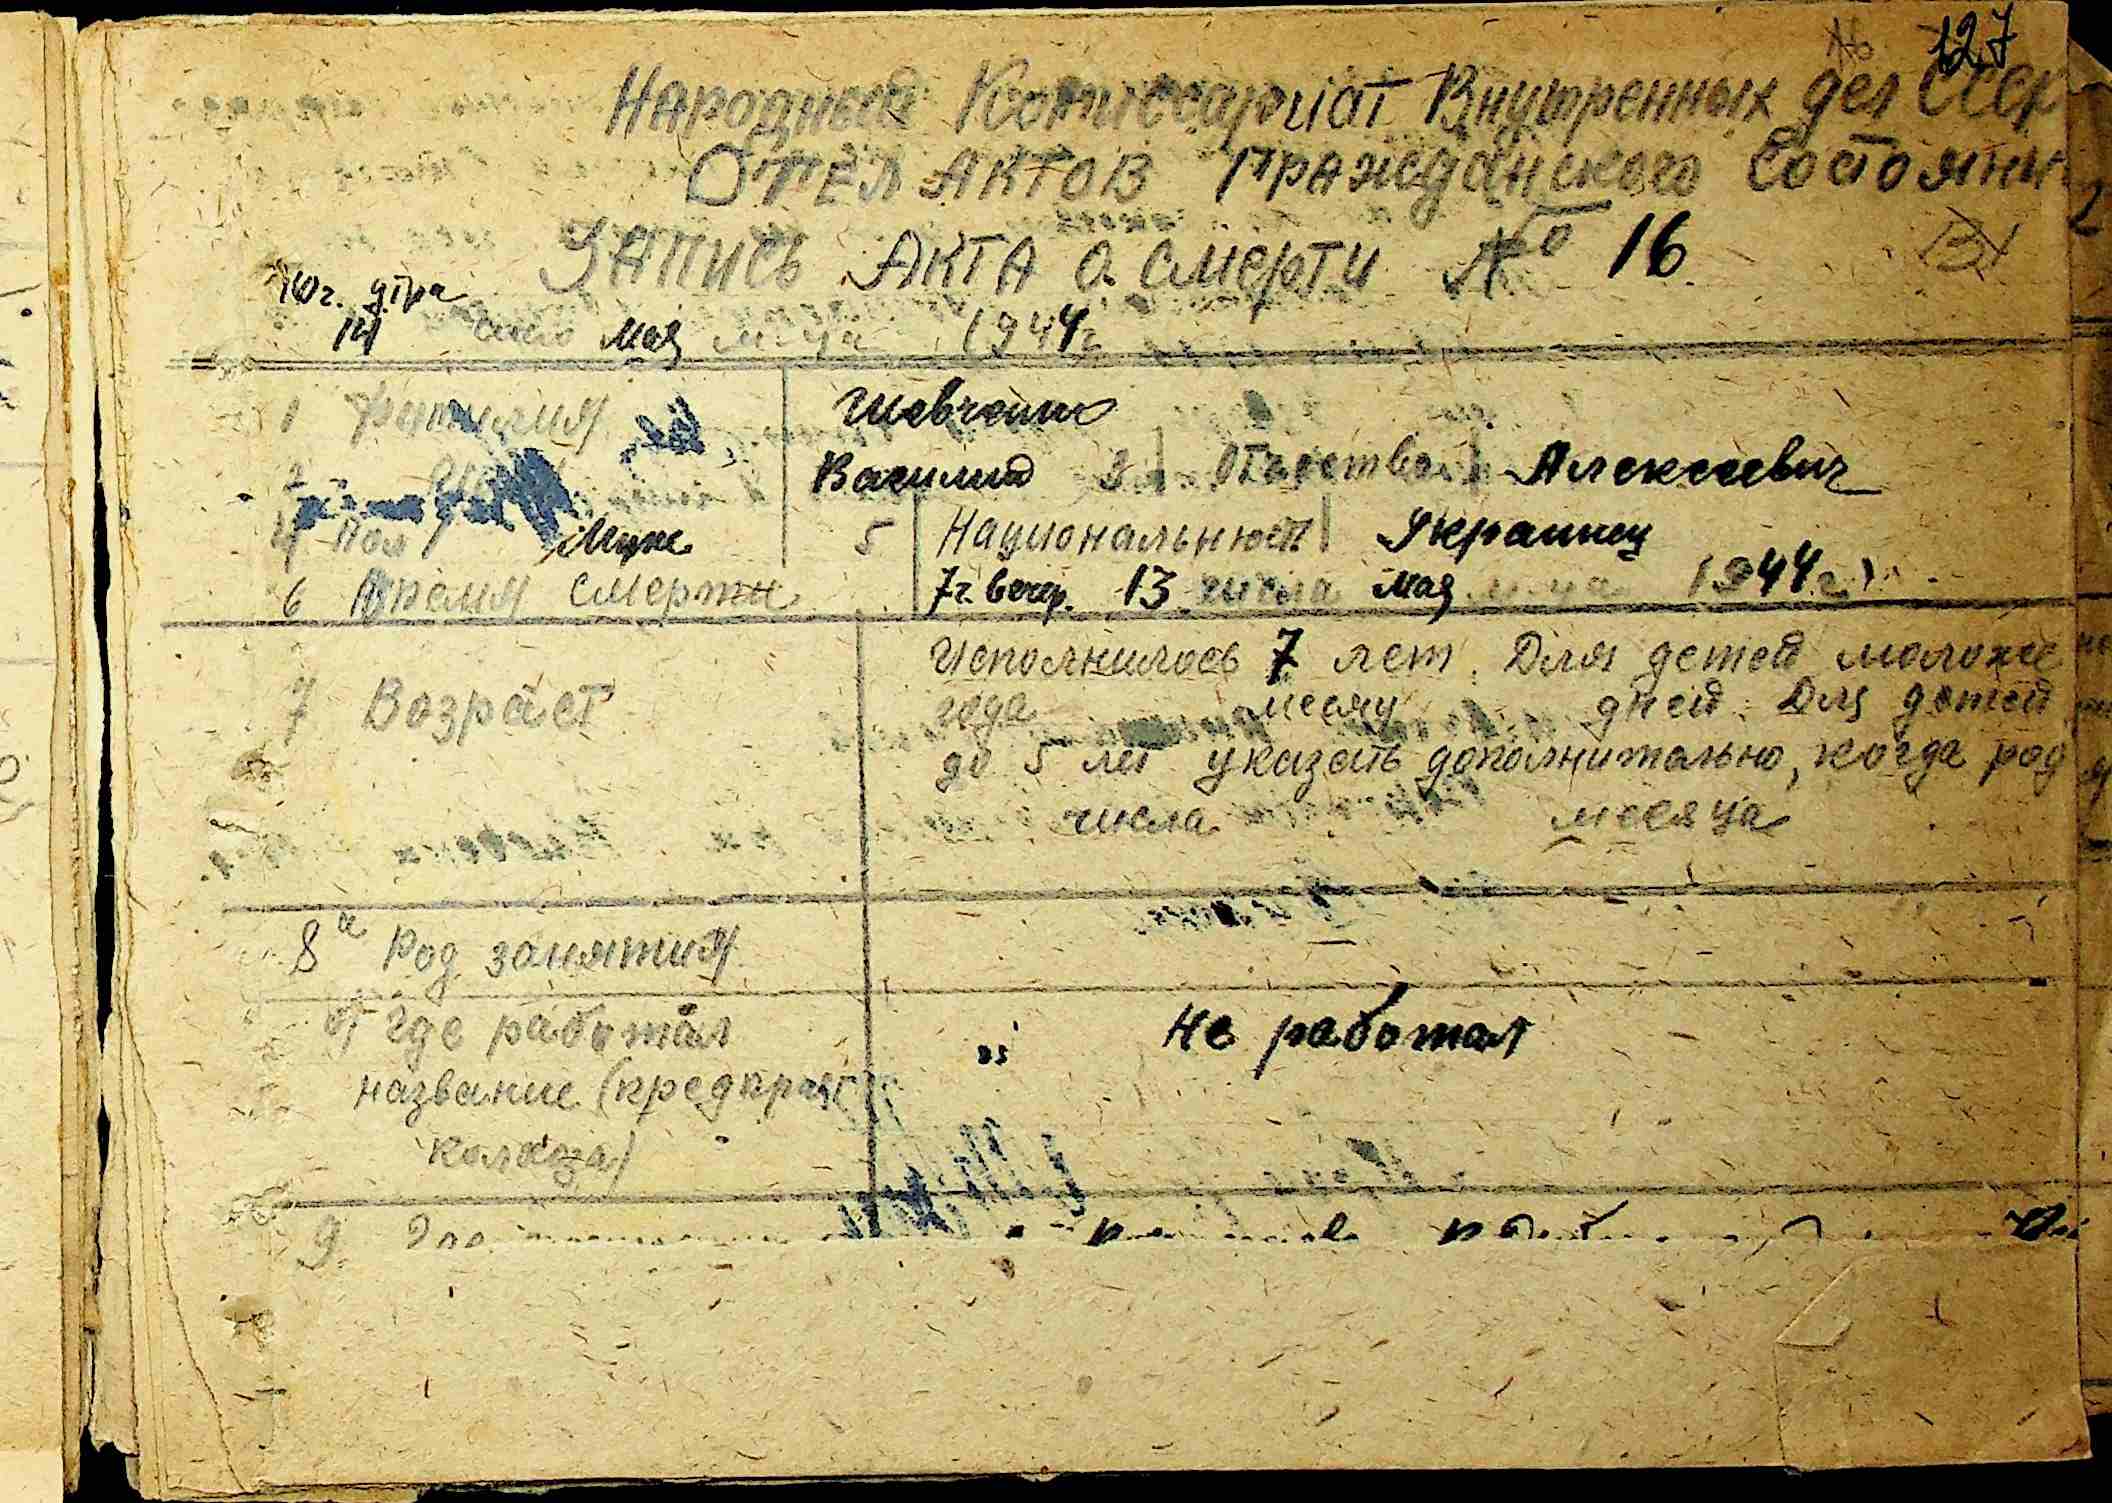 № 127
Народный Комиссариат Внутренных дел СССР
Отдел Актов Гражданского Состояни
Запись Акта о смерти № 16
10 г. утра
14 сего мая м-ца 1944 г
1 Фамилия Шевченко
2 Имя Василий 3 Отчество Алексеевич
4 Пол Муж 5 Национальность Украинец
6 Время смерти 7 г. вечер. 13 числа мая м-ца 1944 г
7 Возраст Исполнилось 7 лет. Для детей моложе
года месяц дней. Для детей
до 5 лет указать дополнительно, когда род
числа месяца
8 а Род занятия
б) Где работал не работал
название (предприят
колхоза)
9